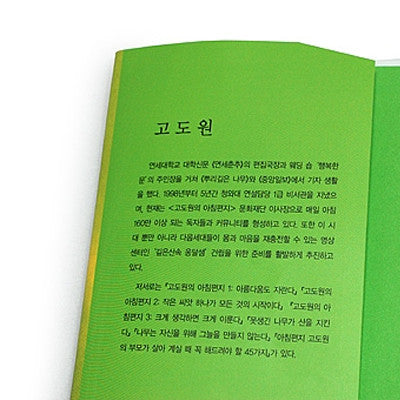 고도원
연세대학교 대학신문 《연세춘추》의 편집국장과 웨딩 숍 '행복한
문'의 주인장을 거쳐 〈뿌리깊은 나무〉와 〈중앙일보〉에서 기자 생활
을 했다. 1998년부터 5년간 청와대 연설담당 1급 비서관을 지냈으
며, 현재는 〈고도원의 아침편지〉 문화재단 이사장으로 매일 아침
160만 이상 되는 독자들과 커뮤니티를 형성하고 있다. 또한 이 시
대 뿐만 아니라 다음세대들이 몸과 마음을 재충전할 수 있는 명상
센터인 '깊은산속 옹달샘' 건립을 위한 준비를 활발하게 추진하고
있다.
저서로는 『고도원의 아침편지 1: 아름다움도 자란다』 『고도원의
아침편지 2: 작은 씨앗 하나가 모든 것의 시작이다』 『고도원의 아
침편지 3: 크게 생각하면 크게 이룬다』 『못생긴 나무가 산을 지킨
다』 『나무는 자신을 위해 그늘을 만들지 않는다』 『아침편지 고도원
의 부모가 살아 계실 때 꼭 해드려야 할 45가지』가 있다.